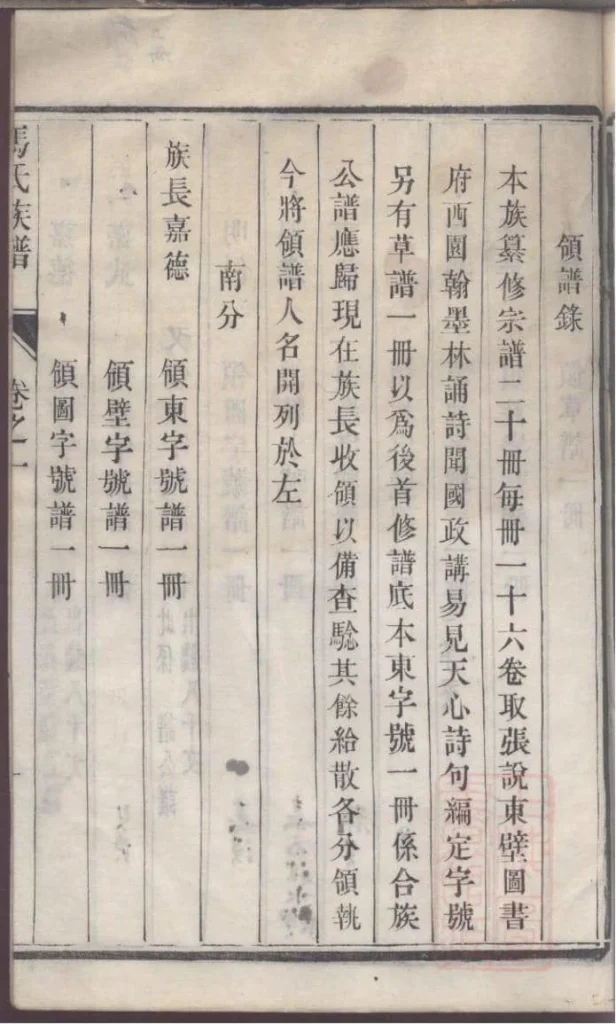 領譜錄
本族纂修宗譜二十冊每冊一十六卷取張說東壁圖書
府西園翰墨林誦詩聞國政講易見天心詩句編定字號
另有草譜一冊以爲後首修譜底本東字號一冊係合族
公譜應歸現在族長收領以備查騐其餘給散各分領執
今將領譜人名開列於左
南分
族長嘉德 領東字號譜一冊
領壁字號譜一冊
領圖字號譜一冊
馮氏族譜 卷之一